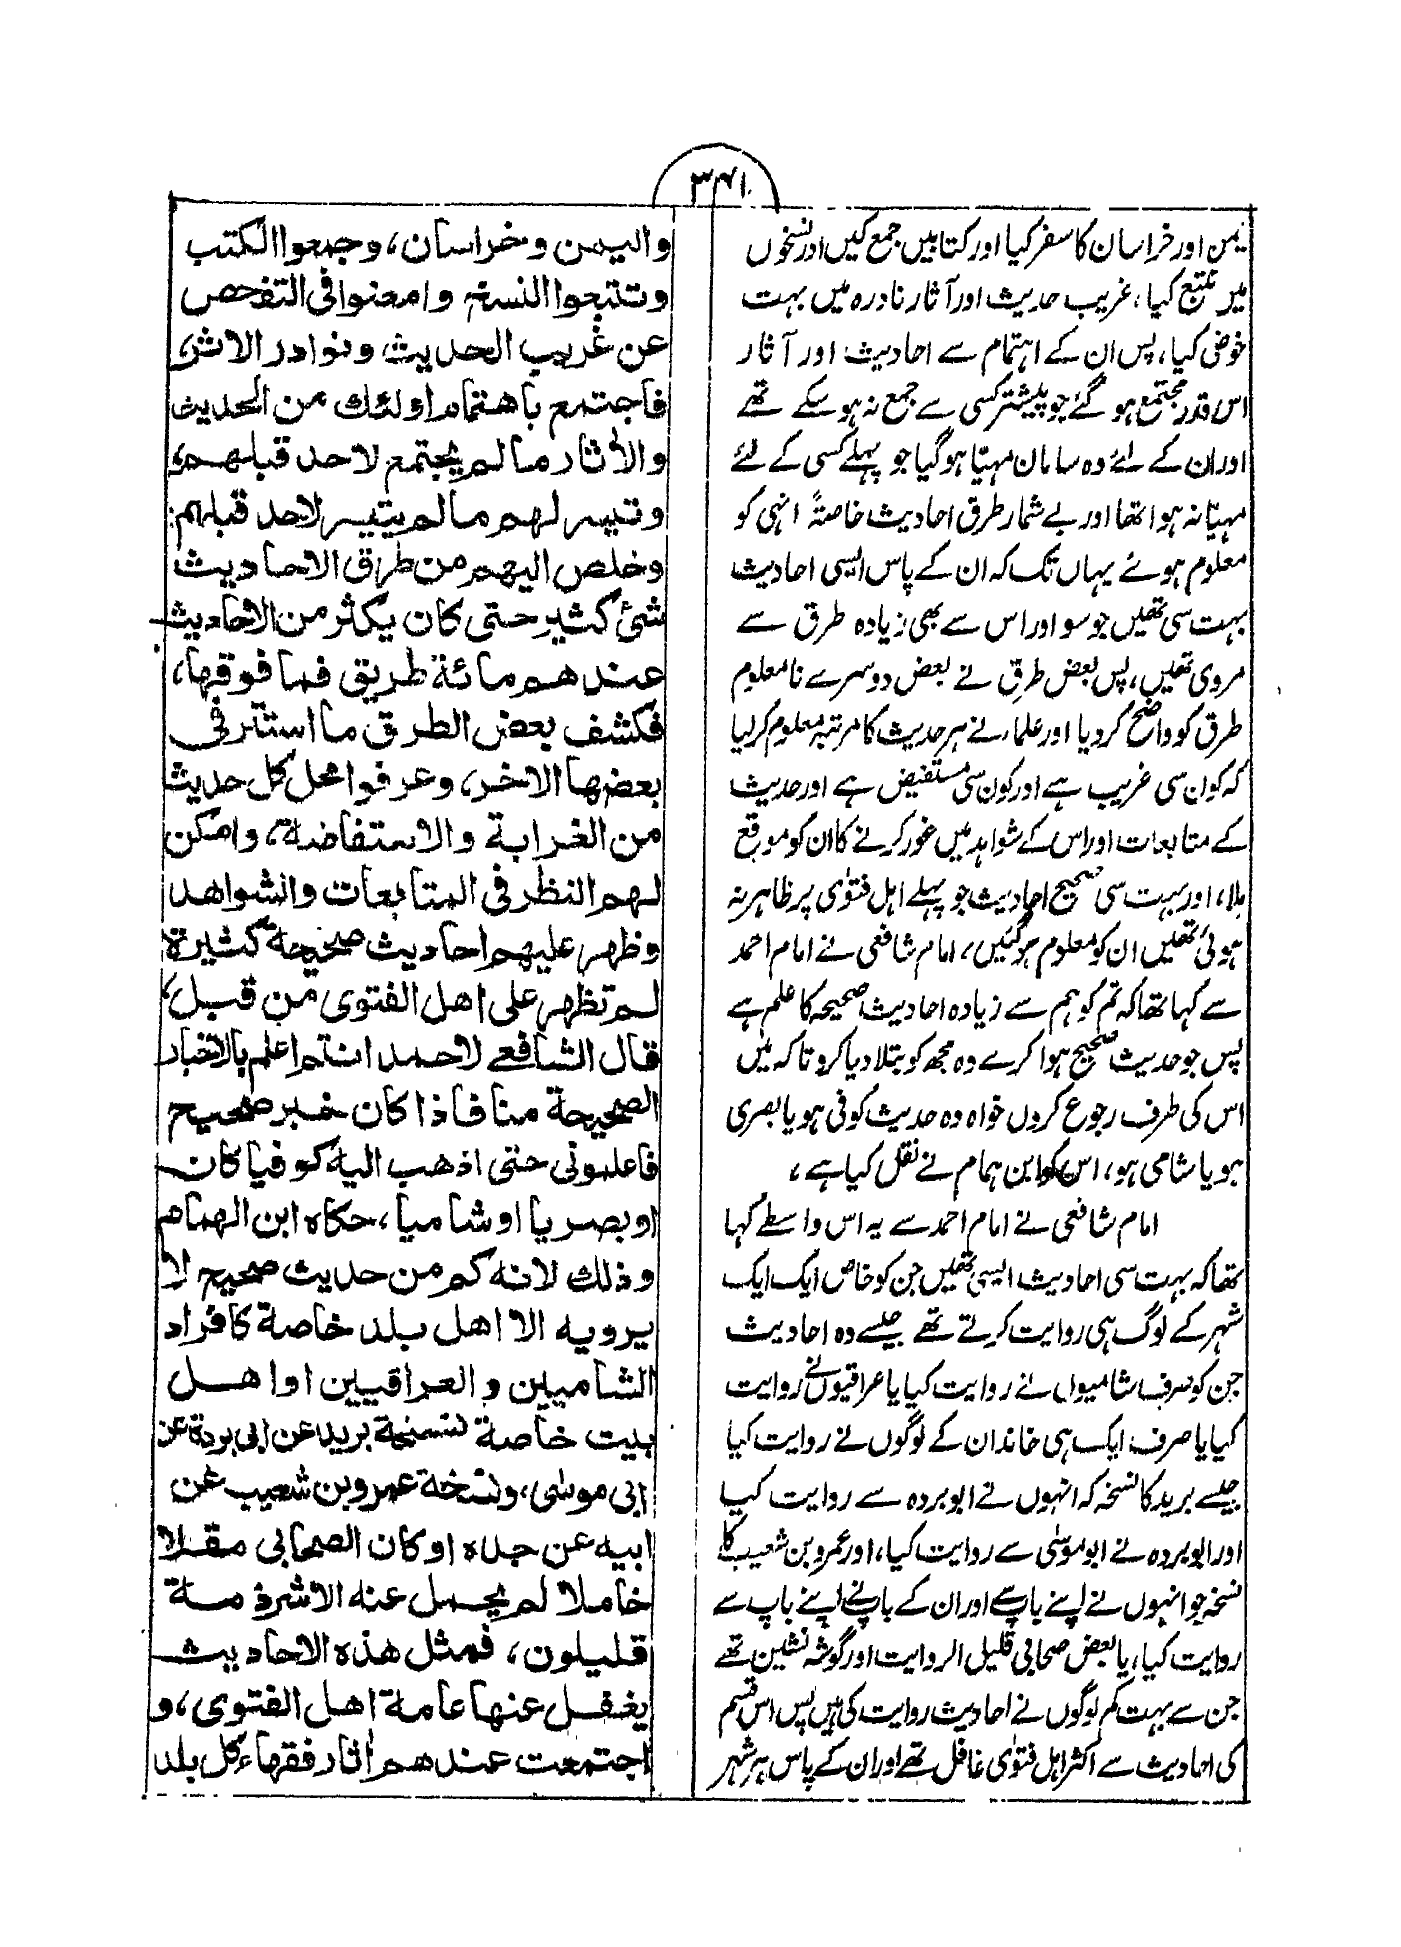 ۳۴۱
یمن اور خراسان کا سفر کیا اور کتابیں جمع کیں اور نسخوں
میں تتبع کیا، غریب حدیث اور آثار نادرہ میں بہت
خوض کیا، پس ان کے اہتمام سے احادیث اور آثار
اس قدر مجتمع ہو گئے جو پیشتر کسی سے جمع نہ ہو سکے تھے
اور ان کے لئے وہ سامان مہیّا ہو گیا جو پہلے کسی کے لئے
مہیّا نہ ہوا تھا اور بے شمار طرق احادیث خاصتہً انہی کو
معلوم ہوئے یہاں تک کہ ان کے پاس ایسی احادیث
بہت سی تھیں جو سو اور اس سے بھی زیادہ طرق سے
مروی تھیں، پس بعض طرق نے بعض دوسرے نامعلوم
طرق کو واضح کر دیا اور علماء نے ہر حدیث کا مرتبہ معلوم کر لیا
کہ کون سی غریب ہے اور کون سی مستفیض ہے اور حدیث
کے متابعات اور اس کے شواہد میں غور کرنے کا ان کو موقع
ملا، اور بہت سی صحیح احادیث جو پہلے اہل فتوٰی پر ظاہر نہ
ہوئی تھیں ان کو معلوم ہو گئیں، امام شافعی نے امام احمد
سے کہا تھا کہ تم کو ہم سے زیادہ احادیث صحیحہ کا علم ہے
پس جو حدیث صحیح ہوا کرے وہ مجھ کو بتلا دیا کرو تاکہ میں
اس کی طرف رجوع کروں خواہ وہ حدیث کوفی ہو یا بصری
ہو یا شامی ہو، اس کو ابن ہمام نے نقل کیا ہے،
امام شافعی نے امام احمد سے یہ اس واسطے کہا
تھا کہ بہت سی احادیث ایسی تھیں جن کو خاص ایک ایک
شہر کے لوگ ہی روایت کرتے تھے جیسے وہ احادیث
جن کو صرف شامیوں نے روایت کیا یا عراقیوں نے روایت
کیا یا صرف ایک ہی خاندان کے لوگوں نے روایت کیا
جیسے برید کا نسخہ کہ انہوں نے ابو بردہ سے روایت کیا
اور ابو بردہ نے ابو موسٰی سے روایت کیا، اور عمرو بن شعیب کا
نسخہ جو انہوں نے اپنے باپ سے اور ان کے باپ نے اپنے باپ سے
روایت کیا، یا بعض صحابی قلیل الروایت اور گوشہ نشین تھے
جن سے بہت کم لوگوں نے احادیث روایت کی ہیں پس اس قسم
کی احادیث سے اکثر اہل فتوٰی غافل تھے اور ان کے پاس ہر شہر
والیمن وخراسان، وجمعوا الکتب
وتتبعوا النسخ وامعنوا فی التفحص
عن غریب الحدیث ونوادر الاثر،
فاجتمع باھتمام اولٰئك من الحدیث
والاٰثار ما لم یجتمع لاحد قبلھم،
وتیسر لھم ما لم یتیسر لاحد قبلھم
وخلص الیھم من طرق الاحادیث
شئ کثیر حتی کان یکثر من الاحادیث
عندھم مائة طریق فما فوقھا،
فکشف بعض الطرق ما استتر فی
بعضھا الاخر، وعرفوا محل کل حدیث
من الغرابة والاستفاضة، وامکن
لھم النظر فی المتابعات والشواھد
وظھر علیھم احادیث صحیحة کثیرة
لم تظھر علی اھل الفتوی من قبل،
قال الشافعے لاحمد انتم اعلم بالاخبار
الصحیحة منا فاذا کان خبر صحیح
فاعلمونی حتی اذھب الیه کوفیا کان
او بصریا او شامیا، حکاہ ابن الھمام
وذلك لانه کم من حدیث صحیح لا
یرویه الا اھل بلد خاصة کافراد
الشامیین والعراقیین او اھل
بیت خاصة کنسخة برید عن ابی بردة عن
ابی موسٰی، ونسخة عمرو بن شعیب عن
ابیه عن جدہ او کان الصحابی مقلا
خاملا لم یحمل عنه الا شرذمة
قلیلون، فمثل ھذہ الاحادیث
یغفل عنھا عامة اھل الفتوی، و
اجتمعت عندھم اٰثار فقھاء کل بلد